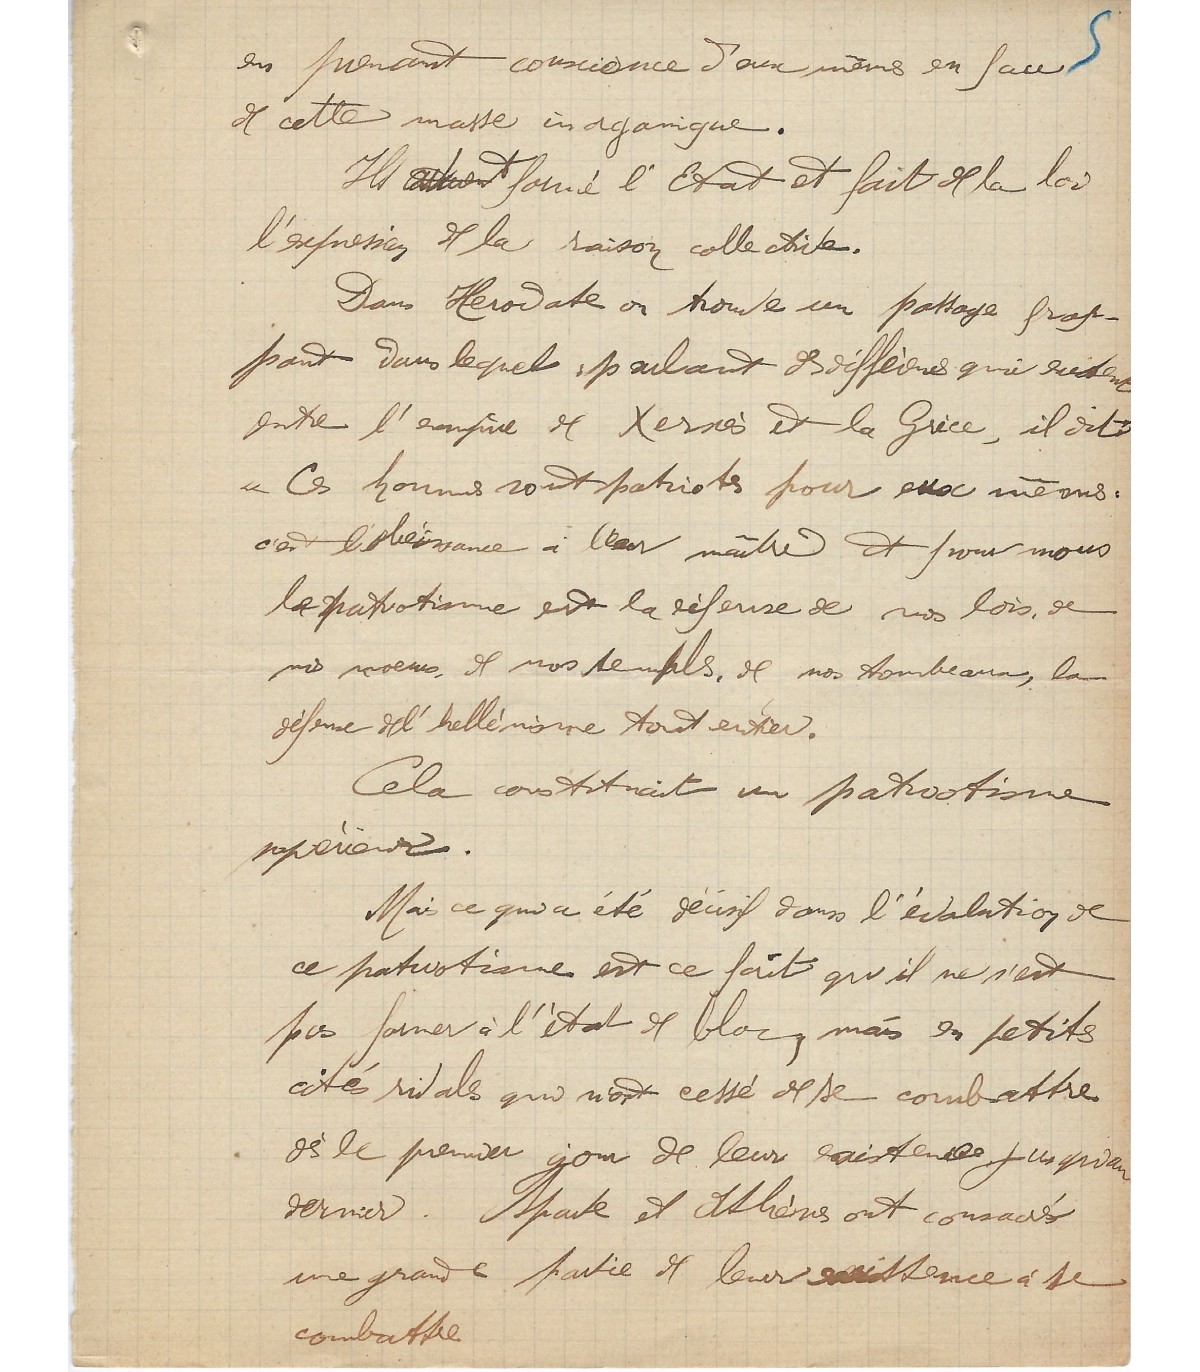 5
en prenant conscience d'eux mêmes en face
de cette masse inorganique.
Ils formé l'Etat et fait de la loi
l'expression de la raison collective.
Dans Herodote on trouve un passage frap-
pant dans lequel, parlant des différences qui existent
entre l'empire de Xerxès et la Grèce, il dit :
« Ces hommes sont patriotes pour eux mêmes.
c'est l'obéissance à leur maître et pour nous
le patriotisme est la défense de nos lois, de
nos moeurs, de nos temples, de nos tombeaux, la
défense de l'hellénisme tout entier.
Cela constituait un patriotisme
supérieur.
Mais ce qui a été décisif dans l'évolution de
ce patriotisme est ce fait qu'il ne s'est
pas former à l'état de bloc, mais en petits
cités rivales qui n'ont cessé de se combattre
dès le premier jour de leur existence jusqu'au
dernier. Sparte et Athènes ont consacrés
une grande partie de leur existence à se
combattre